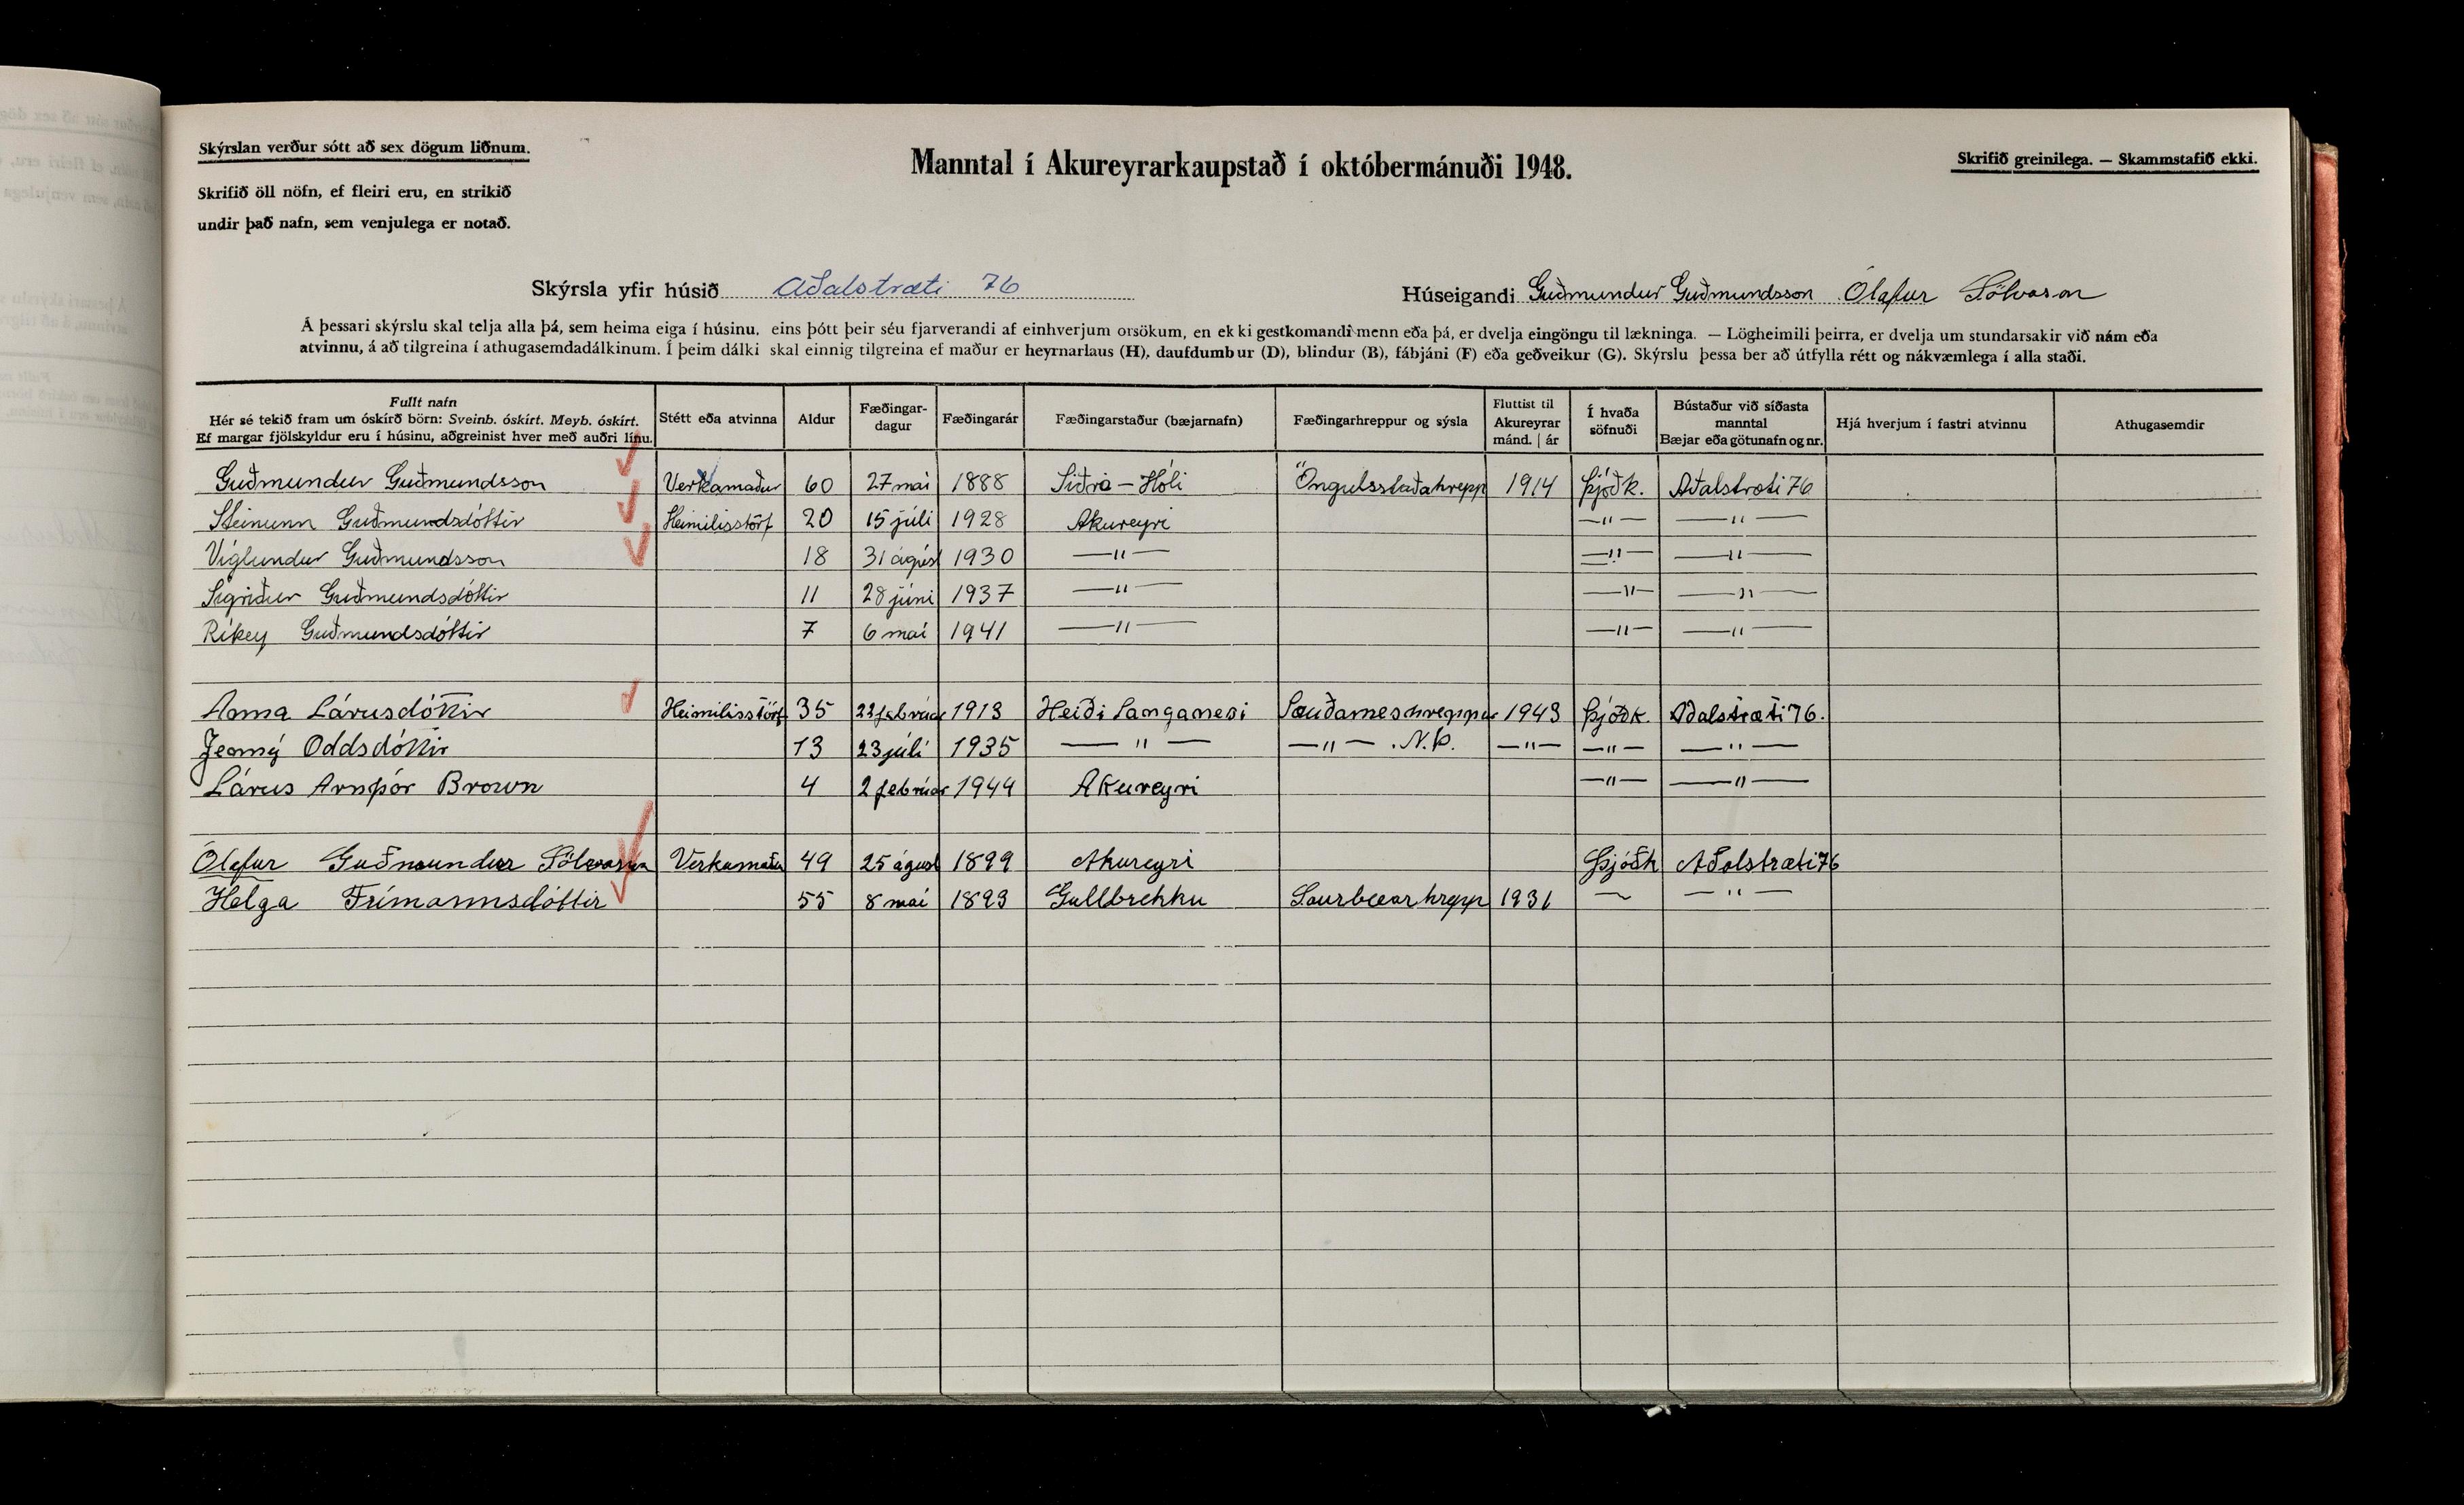 Skýrslan verður sótt að sex dögum liðnum.
Skrifið öll nöfn, ef fleiri eru, en strikið
undir það nafn, sem venjulega er notað.
Manntal í Akureyrarkaupstað í októbermánuði 1948.
Skrifið greinilega. — Skammstafið ekki.
Skýrsla yfir húsið Aðalstræti 76
Húseigandi Guðmundur Guðmundsson Ólafur Sölvason
Á þessari skýrslu skal telja alla þá, sem heima eiga í húsinu, eins þótt þeir séu fjarverandi af einhverjum orsökum, en ekki gestkomandi menn eða þá, er dvelja eingöngu til lækninga. — Lögheimili þeirra, er dvelja um stundarsakir við nám eða
atvinnu, á að tilgreina í athugasemdadálkinum. Í þeim dálki skal einnig tilgreina ef maður er heyrnarlaus (H), daufdumbur (D), blindur (B), fábjáni (F) eða geðveikur (G). Skýrslu þessa ber að útfylla rétt og nákvæmlega í alla staði.
Fullt nafn
Hér sé tekið fram um óskírð börn: Sveinb. óskírt. Meyb. óskírt.
Ef margar fjölskyldur eru í húsinu, aðgreinist hver með auðri línu.
Stétt eða atvinna
Aldur
Fæðingar-
dagur
Fæðingarár
Fæðingarstaður (bæjarnafn)
Fæðingarhreppur og sýsla
Fluttist til
Akureyrar
mánd. | ár
Í hvaða
söfnuði
Bústaður við síðasta
manntal
Bæjar eða götunafn og nr.
Hjá hverjum í fastri atvinnu
Athugasemdir
Guðmundur Guðmundsson Verkamaður 60 27 maí 1888 Siðra-Hóli Öngulsstaðahrepp 1914 Þjóðk. Aðalstræti 76
Steinunn Guðmundsdóttir Heimilisstörf 20 15 júli 1928 Akureyri —"— —"—
Víglundur Guðmundsson 18 31 ágúst 1930 —"— —"— —"—
Sigriður Guðmundsdóttir 11 28 júni 1937 —"— —"— —"—
Ríkey Guðmundsdóttir 7 6 maí 1941 —"— —"— —"—
Anna Lárusdóttir Heimilisstörf 35 22 febrúar 1913 Heiði Langanesi Sauðaneshreppur 1943 Þjóðk. Aðalstræti 76.
Jenný Oddsdóttir 13 23 júlí 1935 —"— —"— .N.Þ. —"— —"— —"—
Lárus Arnþór Brown 4 2 febrúar 1944 Akureyri —"— —"—
Ólafur Guðmundur Sölvason Verkamaður 49 25 ágúst 1899 Akureyri Þjóðk Aðalstræti 76
Helga Frímannsdóttir 55 8 maí 1893 Gullbrekku Saurbæarhrepp 1931 ~ —"—